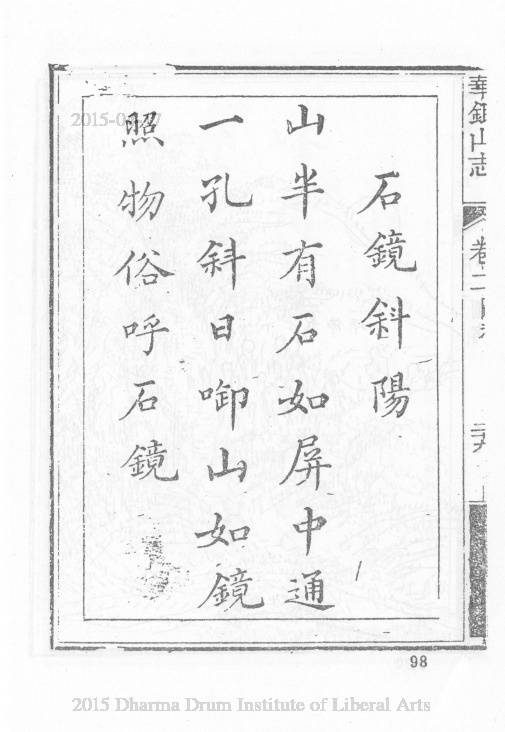 華銀山志
卷二
石鏡斜陽
山半有石如屏中通
一孔斜日啣山如鏡
照物俗呼石鏡
98
2015 Dharma Drum Institute of Liberal Arts